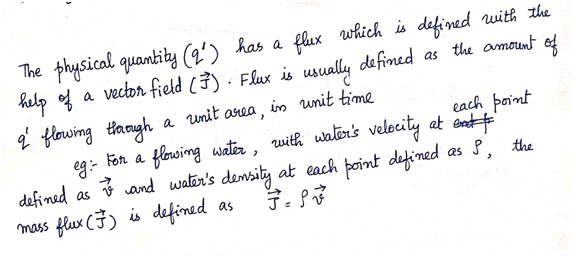 The physical quantity (q') has a flux which is defined with the
help of a vector field (J⃗). Flux is usually defined as the amount of
q' flowing through a unit area, in unit time
eg:- For a flowing water, with water's velocity at each point
defined as v⃗ and water's density at each point defined as ρ, the
mass flux (J⃗) is defined as J⃗ = ρv⃗